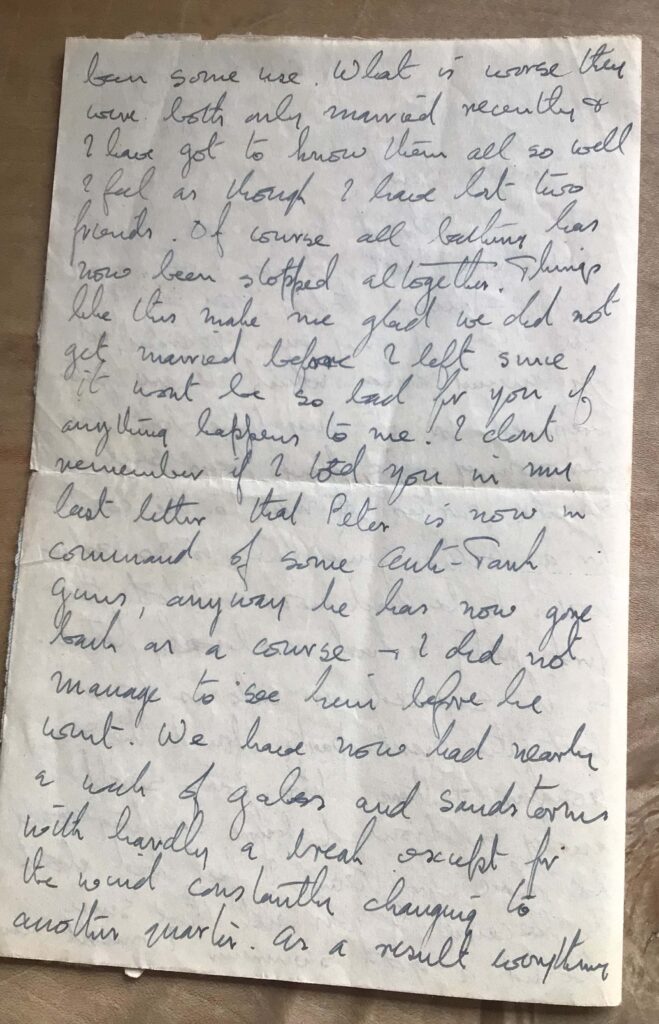 been some use. What is worse they
were both only married recently &
I have got to know them all so well
I feel as though I have lost two
friends. Of course all bathing has
now been stopped altogether. Things
like this make me glad we did not
get married before I left since
it wont be so bad for you if
anything happens to me. I dont
remember if I told you in my
last letter that Peter is now in
command of some Anti-Tank
Guns, anyway he has now gone
back on a course – I did not
manage to see him before he
went. We have now had nearly
a week of gales and sandstorms
with hardly a break except for
the wind constantly changing to
another quarter. As a result everything